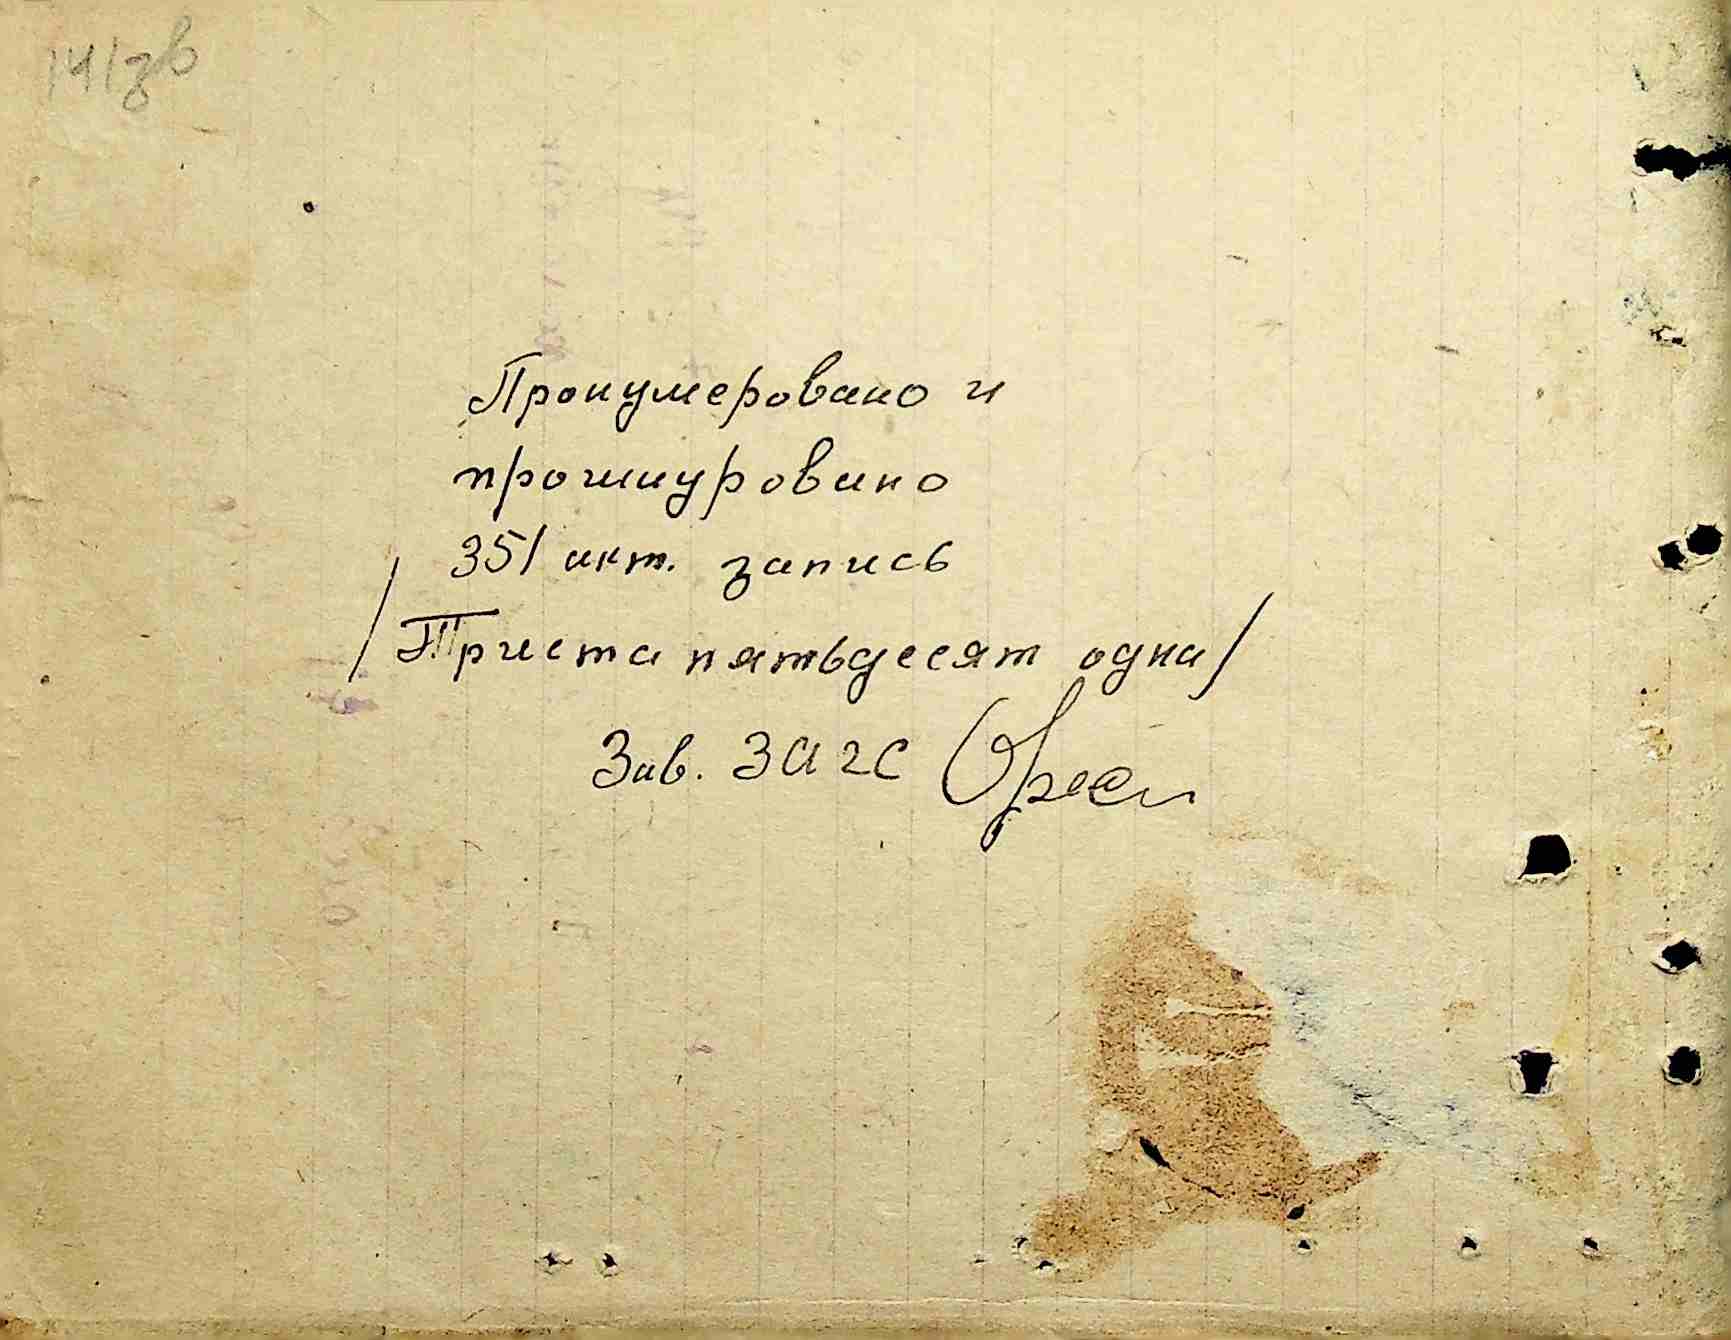 Пронумеровано и
прошнуровано
351 акт. запись
/Триста пятьдесят одна/
Зав. ЗАГС